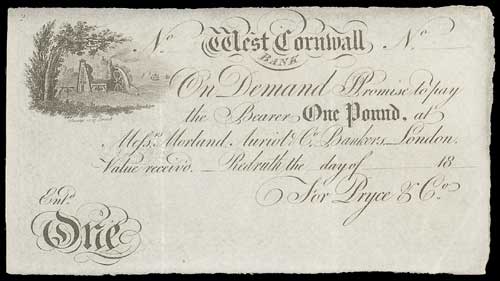 No West Cornwall No
BANK
On Demand I Promise to pay
the Bearer One Pound, at
Messrs Morland, Auriol & Co. Bankers London.
Value receivd. Redruth the day of 18
For Pryce & Co.
Entd.
One